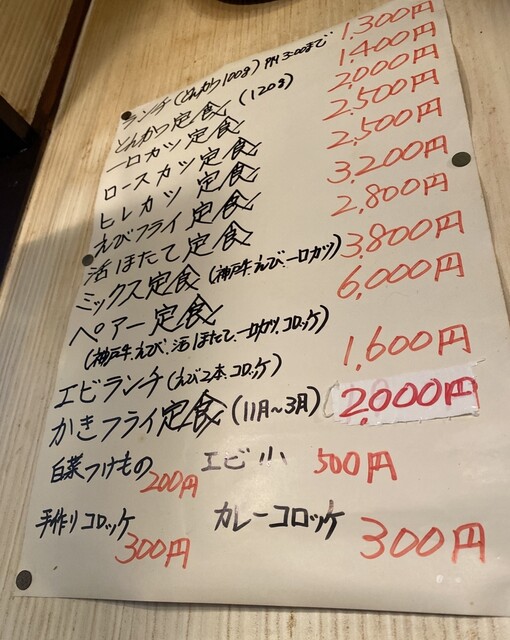 ランチ(とんかつ100g) PM 3:00まで 1,300円
とんかつ定食(120g) 1,400円
一口カツ定食 2,000円
ロースカツ定食 2,500円
ヒレカツ定食 2,500円
えびフライ定食 3,200円
活ほたて定食 2,800円
ミックス定食(神戸牛、えび、一口カツ) 3,800円
ペアー定食 6,000円
(神戸牛、えび、活ほたて、一口カツ、コロッケ)
エビランチ(えび2本、コロッケ) 1,600円
かきフライ定食(11月〜3月) 2,000円
白菜つけもの 200円 エビ小 500円
手作りコロッケ 300円 カレーコロッケ 300円